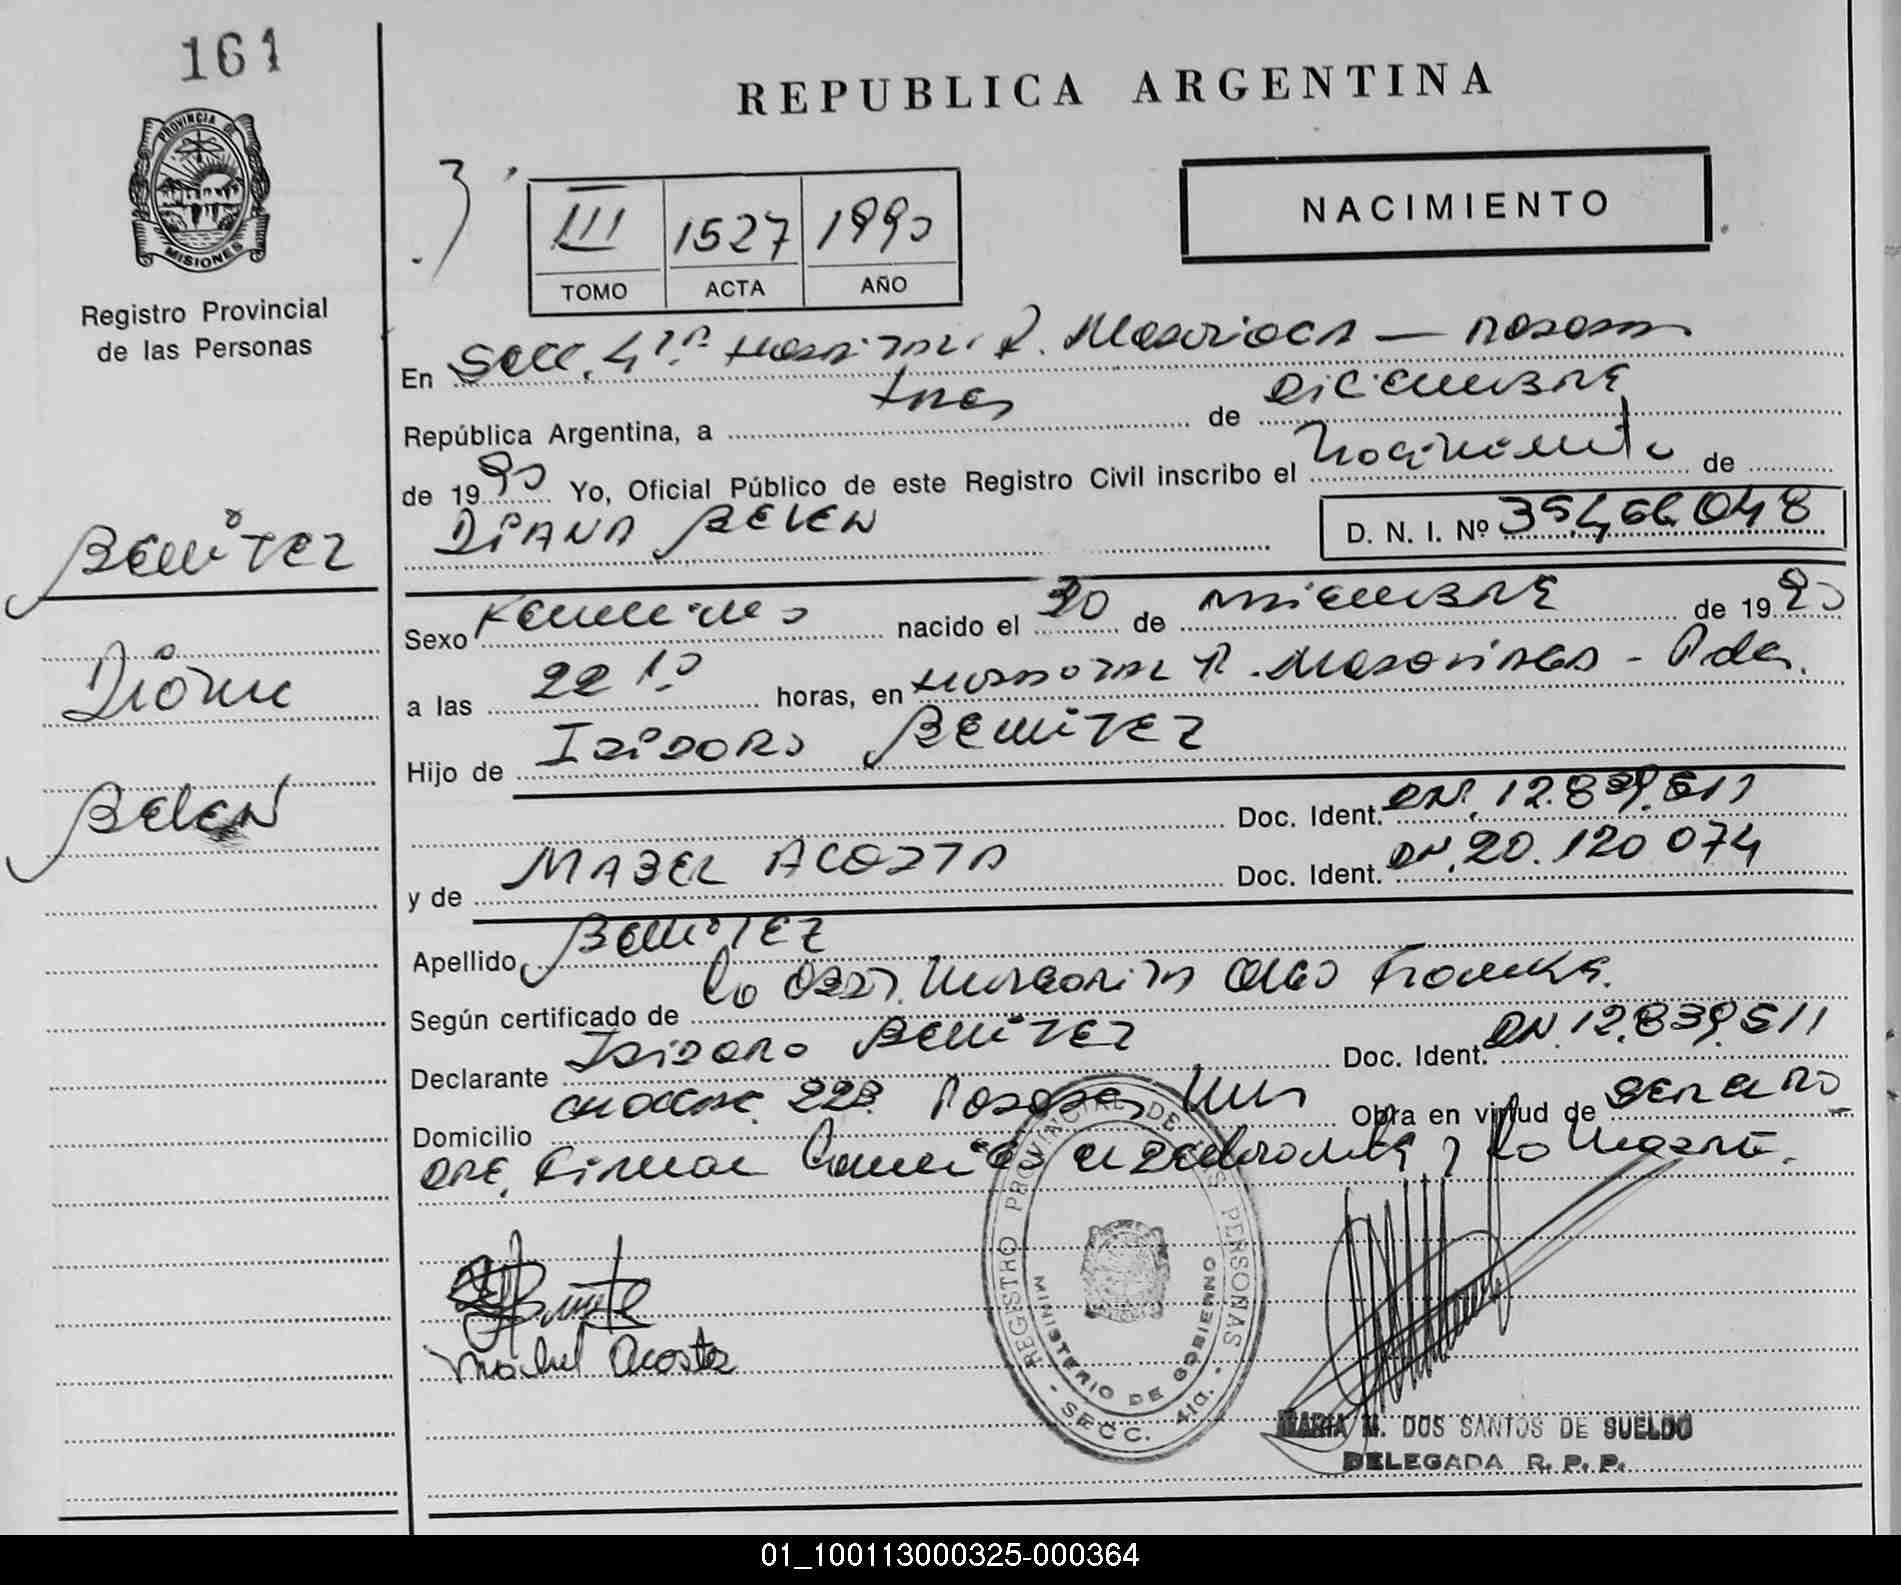 161
PROVINCIA DE
MISIONES
Registro Provincial
de las Personas
REPUBLICA ARGENTINA
NACIMIENTO
III 1527 1990
TOMO ACTA AÑO
En Secc. 4ta Hospital R. Madariaga — Posadas
República Argentina, a tres de Diciembre
de 1990 Yo, Oficial Público de este Registro Civil inscribo el Nacimiento de
DIANA BELEN
D. N. I. Nº 35,466.048
BENITEZ
Diana
BELEN
Sexo Femenino nacido el 30 de Noviembre de 1990
a las 22 10 horas, en Hospital R. Madariaga - Pdas.
Hijo de ISIDORO BENITEZ
Doc. Ident. DNI. 12.839.511
y de MABEL ACOSTA Doc. Ident. DNI. 20.120 074
Apellido BENITEZ
Según certificado de la Obst. Margarita
Declarante Isidoro BENITEZ Doc. Ident. DNI. 12.839.511
Domicilio 223 Posadas Mns Obra en virtud de ser el PA
DRE. Firman el declarante y la Madre.
Mabel Acosta
REGISTRO PROVINCIAL DE LAS PERSONAS
MINISTERIO DE GOBIERNO
- SECC. 4ta. -
MARIA M. DOS SANTOS DE SUELDO
DELEGADA R. P. P.
01_100113000325-000364